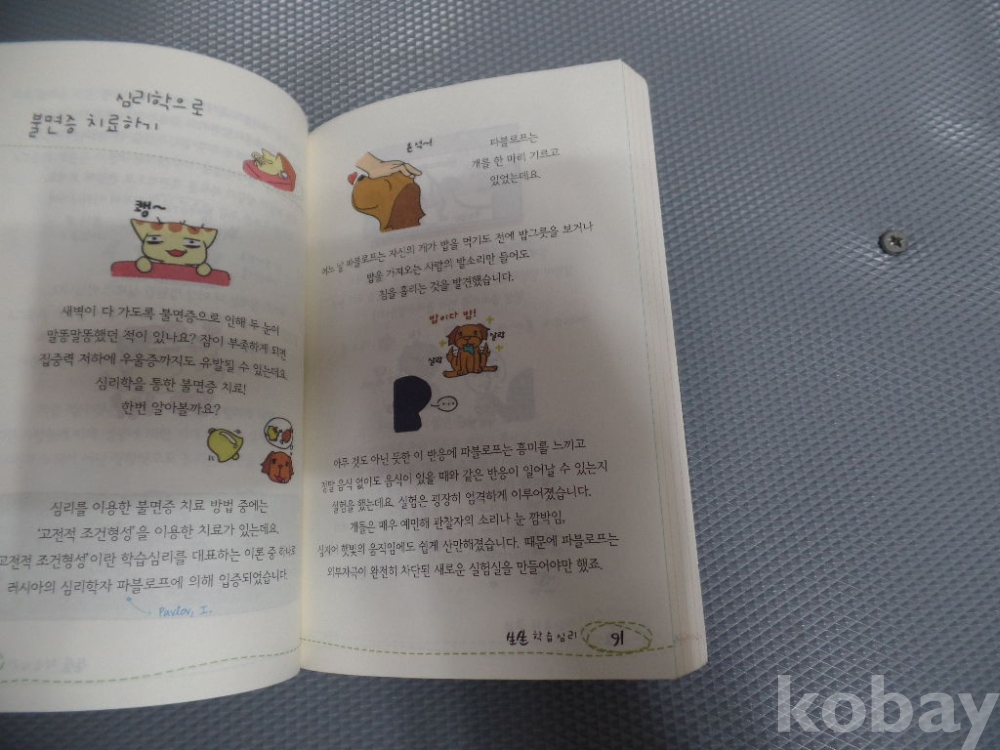 심리학으로
불면증 치료하기
쾡~
새벽이 다 가도록 불면증으로 인해 두 눈이
말똥말똥했던 적이 있나요? 잠이 부족하게 되면
집중력 저하에 우울증까지도 유발될 수 있는데요.
심리학을 통한 불면증 치료!
한번 알아볼까요?
심리를 이용한 불면증 치료 방법 중에는
'고전적 조건형성'을 이용한 치료가 있는데요.
'고전적 조건형성'이란 학습심리를 대표하는 이론 중 하나로
러시아의 심리학자 파블로프에 의해 입증되었습니다.
Pavlov, I.
파블로프는
개를 한 마리 기르고
있었는데요.
어느 날 파블로프는 자신의 개가 밥을 먹기도 전에 밥그릇을 보거나
밥을 가져오는 사람의 발소리만 들어도
침을 흘리는 것을 발견했습니다.
밥이다 밥!
살랑
살랑
아무 것도 아닌 듯한 이 반응에 파블로프는 흥미를 느끼고
정말 음식 없이도 음식이 있을 때와 같은 반응이 일어날 수 있는지
실험을 했는데요. 실험은 굉장히 엄격하게 이루어졌습니다.
개들은 매우 예민해 관찰자의 소리나 눈 깜박임,
심지어 햇빛의 움직임에도 쉽게 산만해졌습니다. 때문에 파블로프는
외부자극이 완전히 차단된 새로운 실험실을 만들어야만 했죠.
학습심리
91
kobay